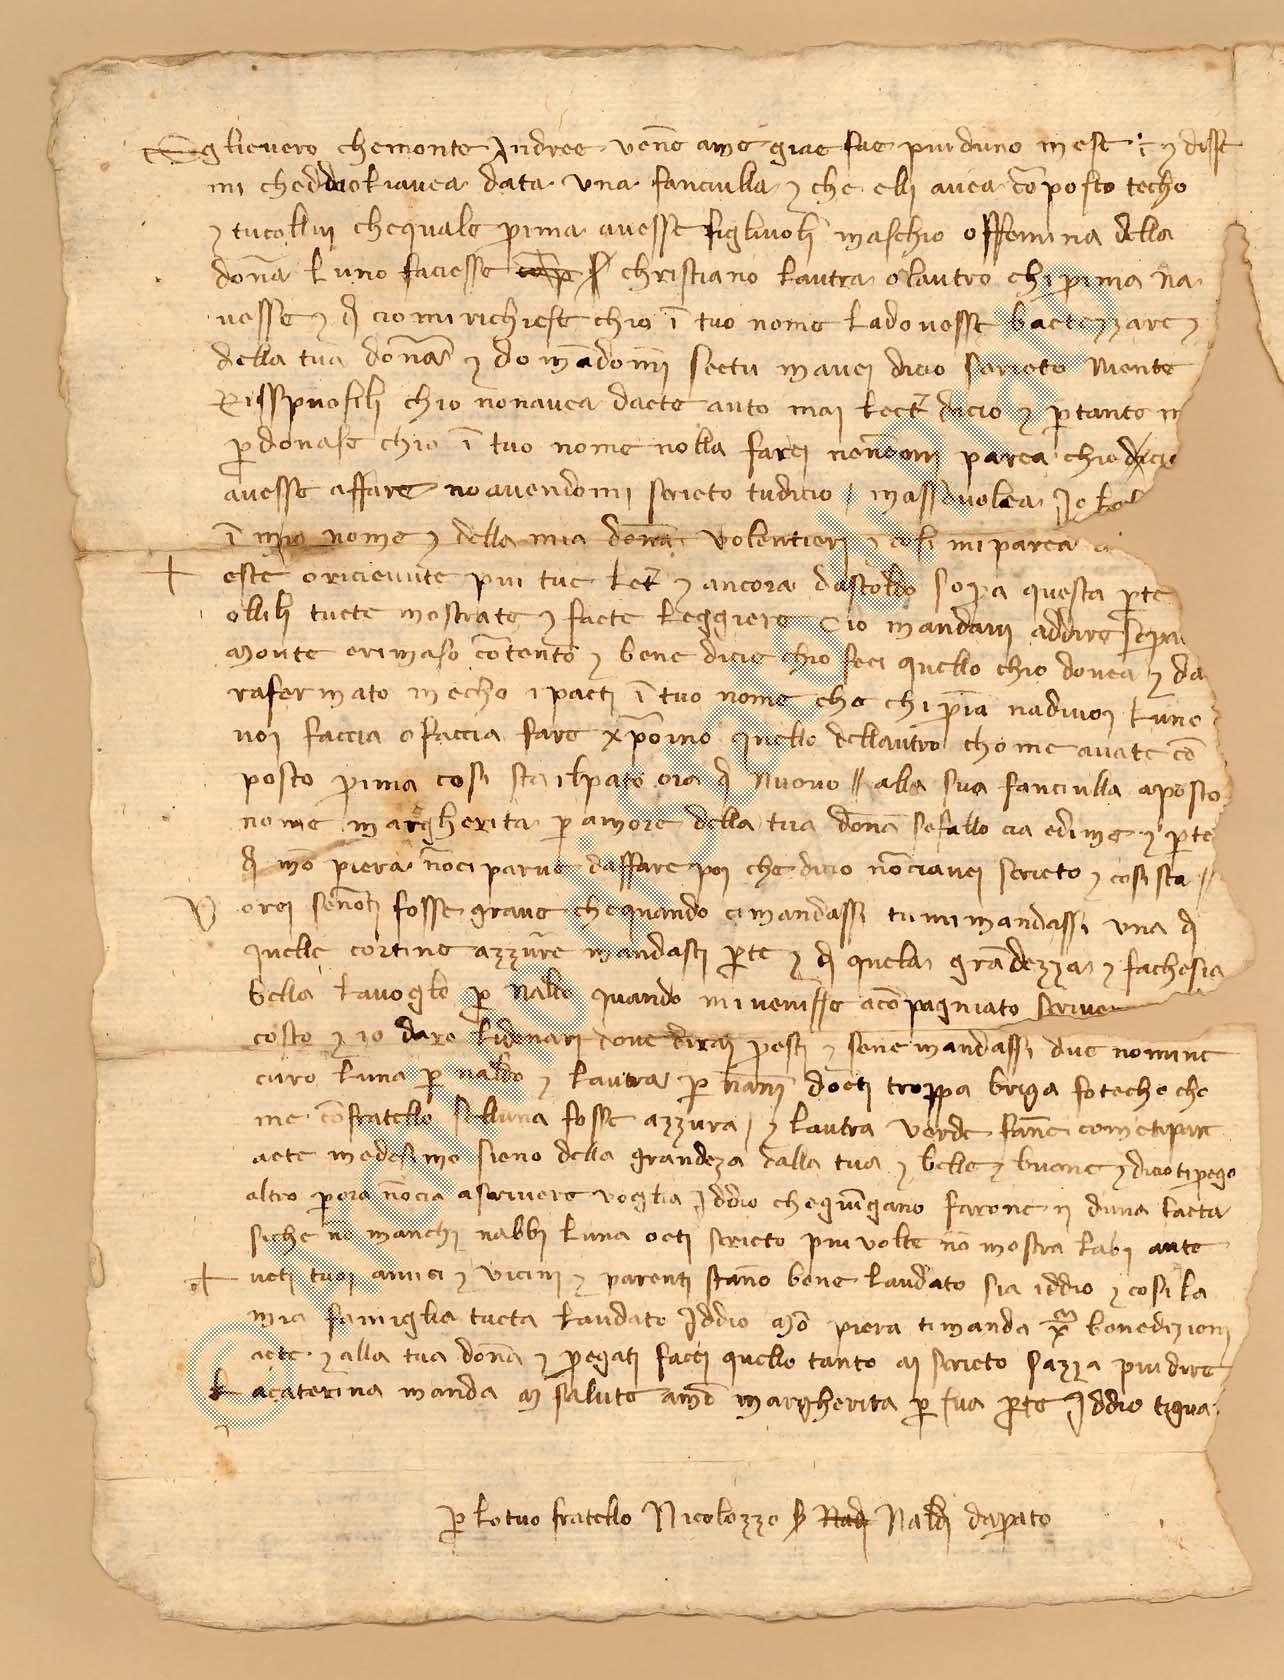 Egli e vero che monte Andree venne a me gia e fae piu d uno mese e disse
mi che ddio li avea data una fanciulla e che elli avea cõposto techo
e tu collui che quale prima avesse figliuoli maschio o ffemina della
dona l uno faciesse christiano l autra o l autro chi prima n a
vesse e di cio mi richiese ch io ĩ tuo nome la dovesse bactezzare e
della tua dona e domãdomi se ctu m avei di cio scricto niente
Rissipuosili ch io non avea da cte auto mai lect di cio e pertanto m
perdonase ch io ĩ tuo nome nolla farei non mi parea ch io di cio
avesse affare no avendomi scricto tu di cio / ma sse volea Io
ĩ mio nome e della mia dona volentieri e cosi mi parea
este o ricieuute piu tue let e ancora da stoldo sopra questa parte
o llili tucte mostrate e facte leggiere Cio mandavi addire sopra
Monte e rimaso cõtento e bene dicie ch io feci quello ch io dovea e da
rafermato mecho i pacti ĩ tuo nome che chi prima n a di voi l uno
voi faccia o faccia fare xpoino quello dell autro chome avate cõ
posto prima cosi sta il pato ora di nuovo // alla sua fanciulla a posto
nome margherita per amore della tua dona se fallo ci a ed i me e per te
di mõ piera nõ ci parve d affare poi che di cio nõ ci avei scricto e cosi sta //
Vorei se nõ ti fosse grave che quando ci mandassi tu mi mandassi una di
quelle cortine azzurre mandasti per te e di quela grãdezza e fa che sia
bella la voglo per naldo quando mi venisse acõpagniato scrivemi
costo e io daro li denari dove dirai presti e se ne mandassi due non ne
curo l una per naldo e l autra per nãni do cti troppa briga fo techo che
me cõ fratello se ll una fosse azzura / e l autra verde fane come ti pare
a cte medesimo sieno della grandeza dalla tua e belle e buone e di cio ti prego
altro per ora nõ ci a a scrivere voglia Iddio che quĩ gano farone n d una lacta
siche nõ manchi n abbi l una o cti scricto piu volte nõ mostra l abi aute
ucti tuoi amici e vicini e parenti stano bene laudato sia iddio e cosi la
mia famiglia tucta laudato Iddio Mõ piera ti manda benedizioni
a cte e alla tua dona e pregati facci quello tanto ai scricto sazza piu dire
La caterina manda M saluto a mõ margherita per sua parte Iddio ti guar
per lo tuo fratello Nicolozzo di Naldi da prato